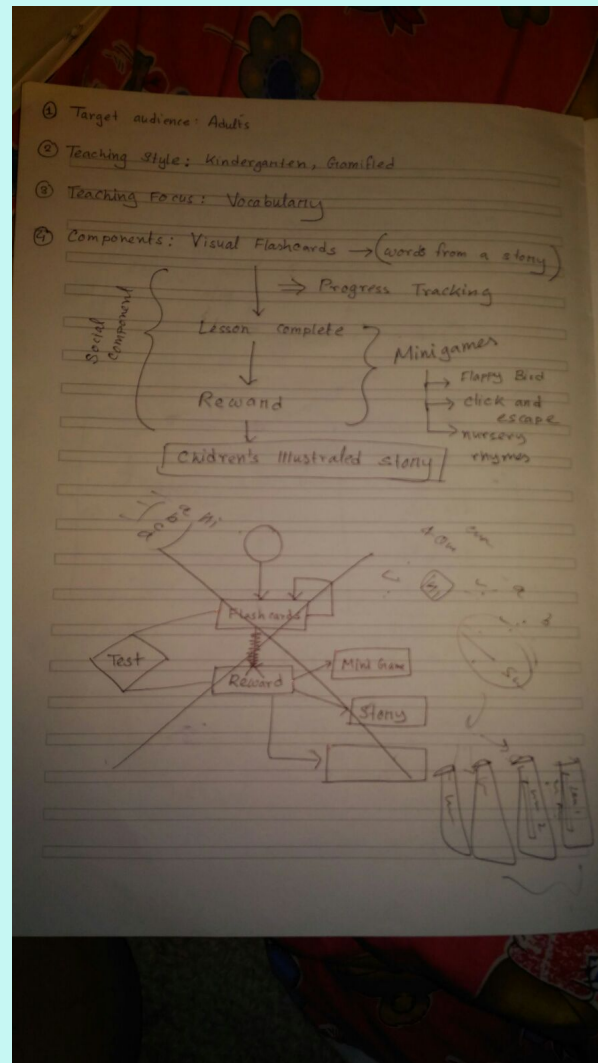 ① Target audience: Adults
② Teaching Style: Kindergarten, Gamified
③ Teaching Focus: Vocabulary
④ Components: Visual Flashcards → (words from a story)
⇒ Progress Tracking
Social Component
Lesson complete
Minigames
Flappy Bird
click and
escape
Reward
nursery
rhymes
Chidren's Illustrated Story
Flashcards
Test
Mini Game
Reward
Story